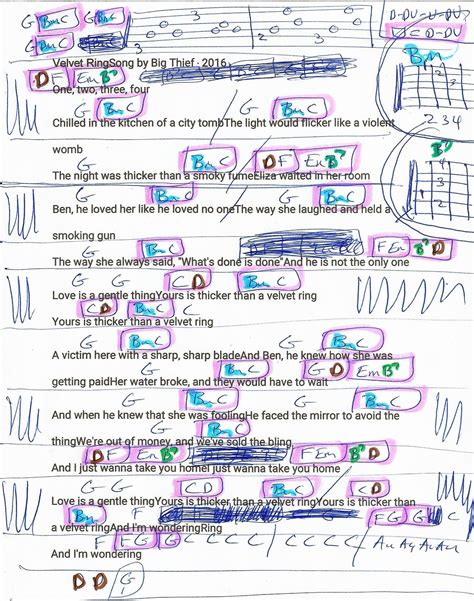 G Bm C D-DU-U-DU
G Bm C U=D-DU
Velvet RingSong by Big Thief · 2016 Bm
D F Em B7
One, two, three, four
G Bm C G Bm C
Chilled in the kitchen of a city tombThe light would flicker like a violent 2 3 4
womb
G Bm C D F Em B7 B7
The night was thicker than a smoky fumeEliza waited in her room
G Bm C G Bm C
Ben, he loved her like he loved no oneThe way she laughed and held a
smoking gun
G Bm C F Em B7 D
The way she always said, "What's done is done"And he is not the only one
G G C D Bm C
Love is a gentle thingYours is thicker than a velvet ring
C D Bm C G
Yours is thicker than a velvet ring
G Bm C G
A victim here with a sharp, sharp bladeAnd Ben, he knew how she was
Bm C G G D Em B7
getting paidHer water broke, and they would have to wait
G Bm C G Bm C
And when he knew that she was foolingHe faced the mirror to avoid the
G Bm C
thingWe're out of money, and we've sold the bling
D F Em B7 F Em B7 D
And I just wanna take you homeI just wanna take you home
G G C D Bm C C D
Love is a gentle thingYours is thicker than a velvet ringYours is thicker than
Bm G F G G C
a velvet ringAnd I'm wonderingRing
C F F G G C C C C
And I'm wondering
D D G